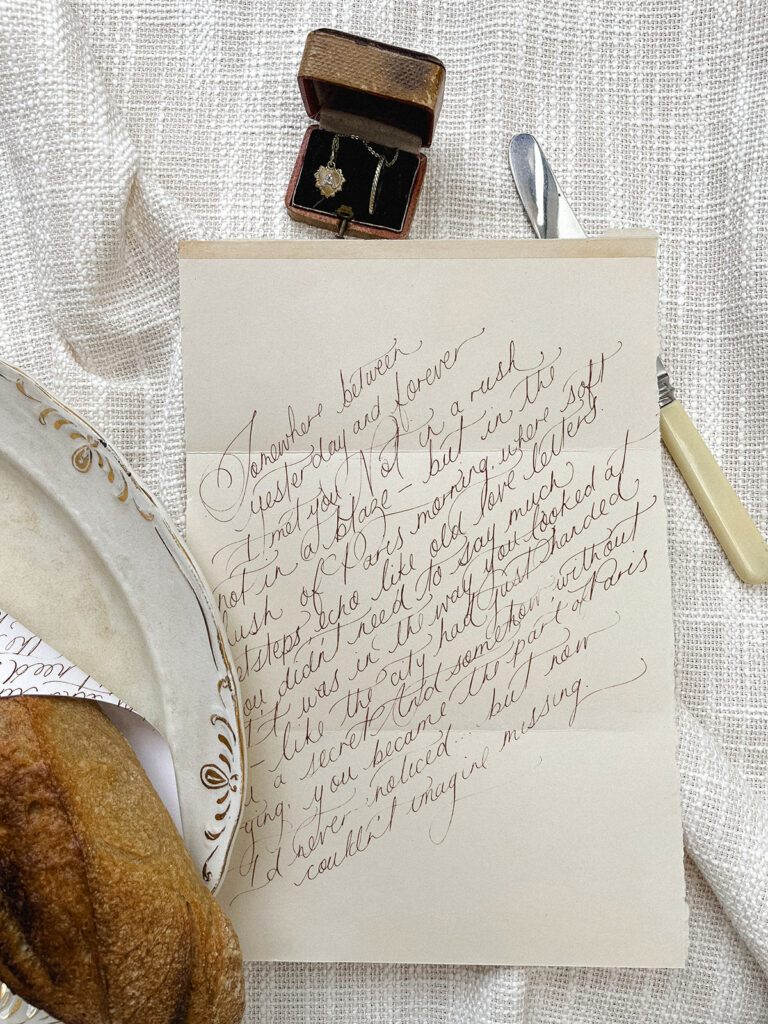 Somewhere between
yesterday and forever
I met you. Not in a rush
not in a blaze – but in the
hush of Paris morning, where soft
etsteps echo like old love letters.
ou didn't need to say much
It was in the way you looked at
– like the city had just handed
u a secret. And somehow, without
ying, you became the part of Paris
I'd never noticed... but now
couldn't imagine missing
the
need